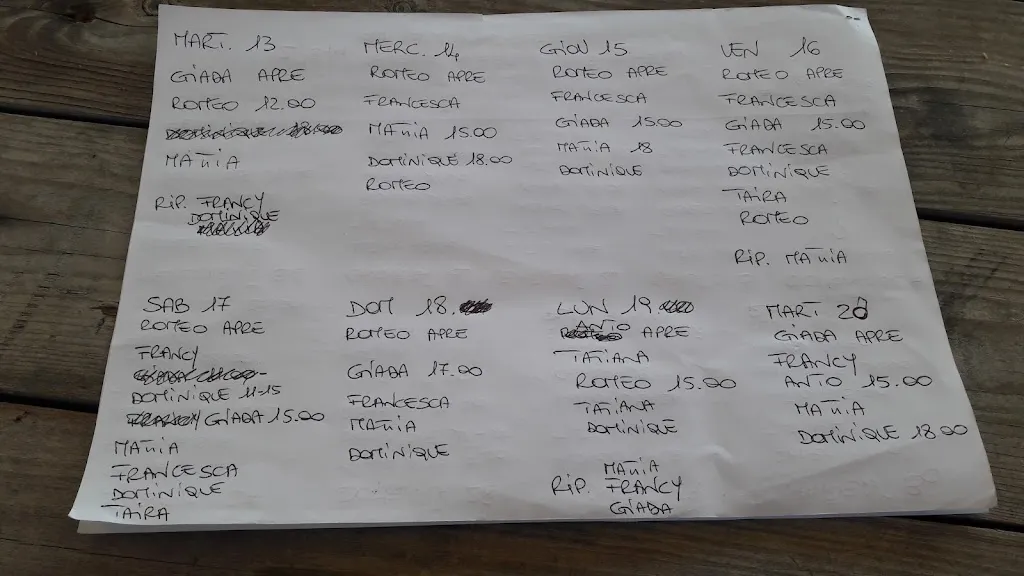 MART. 13
GIADA APRE
ROMEO 12.00
MATIIA
RIP. FRANCY
DOMINIQUE
MERC. 14
ROMEO APRE
FRANCESCA
MATIIA 15.00
DOMINIQUE 18.00
ROMEO
GIOV 15
ROMEO APRE
FRANCESCA
GIADA 15.00
MATIIA 18
DOMINIQUE
VEN 16
ROMEO APRE
FRANCESCA
GIADA 15.00
FRANCESCA
DOMINIQUE
TAIRA
ROMEO
RIP. MATIIA
SAB 17
ROMEO APRE
FRANCY
DOMINIQUE 11-15
FRANCY GIADA 15.00
MATIIA
FRANCESCA
DOMINIQUE
TAIRA
DOM 18.
ROMEO APRE
GIADA 17.00
FRANCESCA
MATIIA
DOMINIQUE
LUN 19
ANTO APRE
TATIANA
ROMEO 15.00
TATIANA
DOMINIQUE
MATIIA
RIP. FRANCY
GIADA
MART 20
GIADA APRE
FRANCY
ANTO 15.00
MATIIA
DOMINIQUE 18.00